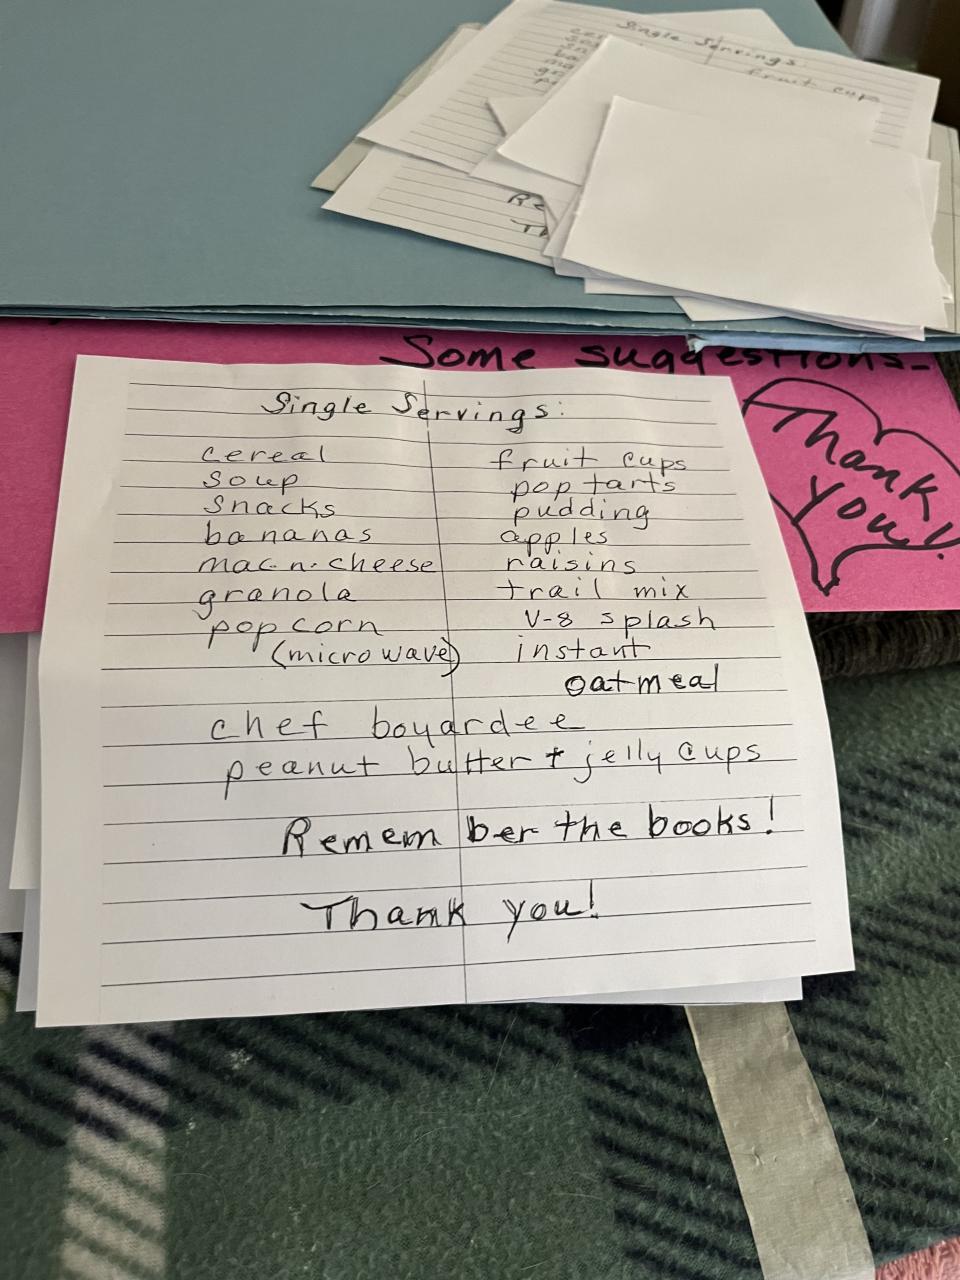 Single Servings:
fruit cup
Some suggestions-
Thank
you!
Single Servings:
cereal
soup
snacks
bananas
mac-n-cheese
granola
popcorn
(microwave)
fruit cups
pop tarts
pudding
apples
raisins
trail mix
V-8 splash
instant
oatmeal
chef boyardee
peanut butter + jelly cups
Remember the books!
Thank you!